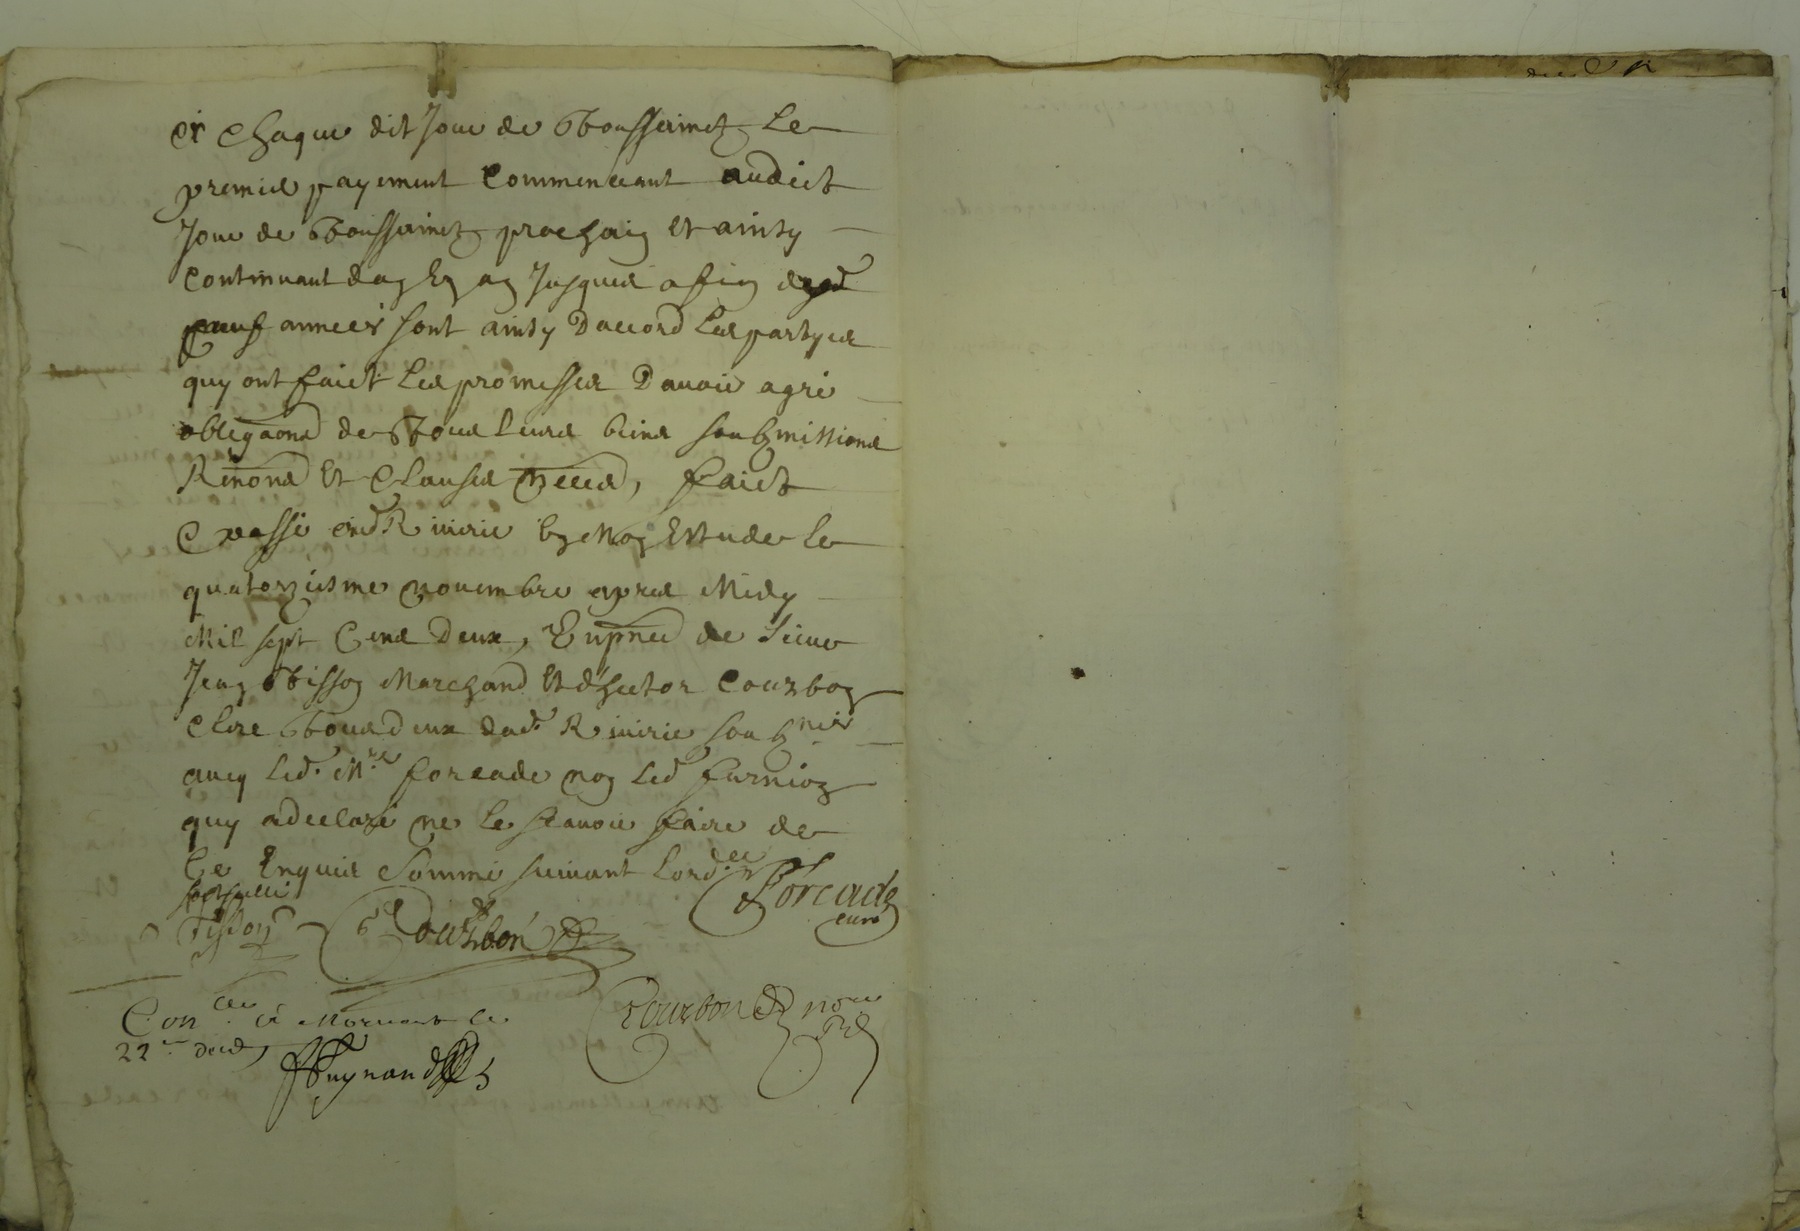 et chaque dit Jour de Toussainctz Le
premier payement Commenceant audict
Jour de Toussainctz prochain Et ainsy
Continuant dan En an Jusques a fin desd
neuf annees sont ainsy Daccord Les partyes
quy ont faict Les promesses Davoir agre
obligaons de Tous Leurs biens soubzmissions
Renons Et Clauses necces, faict
Et passe aud Riverie En Mon Estude Le
quatorziesme novembre apres Midy
Mil sept Cens Deux, En pnce de Sieur
Jean Tisson Marchand Et hector Courbon
Clerc Tous deux dud. Riverie soubznes
avec Led. Mre forcade non Led furnion
quy a declare ne Le scavoir faire de
Ce Enquis Somme suivant Lord.ce
Forcade
cure
Tisson Courbon
Courbon nore
Rl
Con.lle a Mornant Le
22me dud